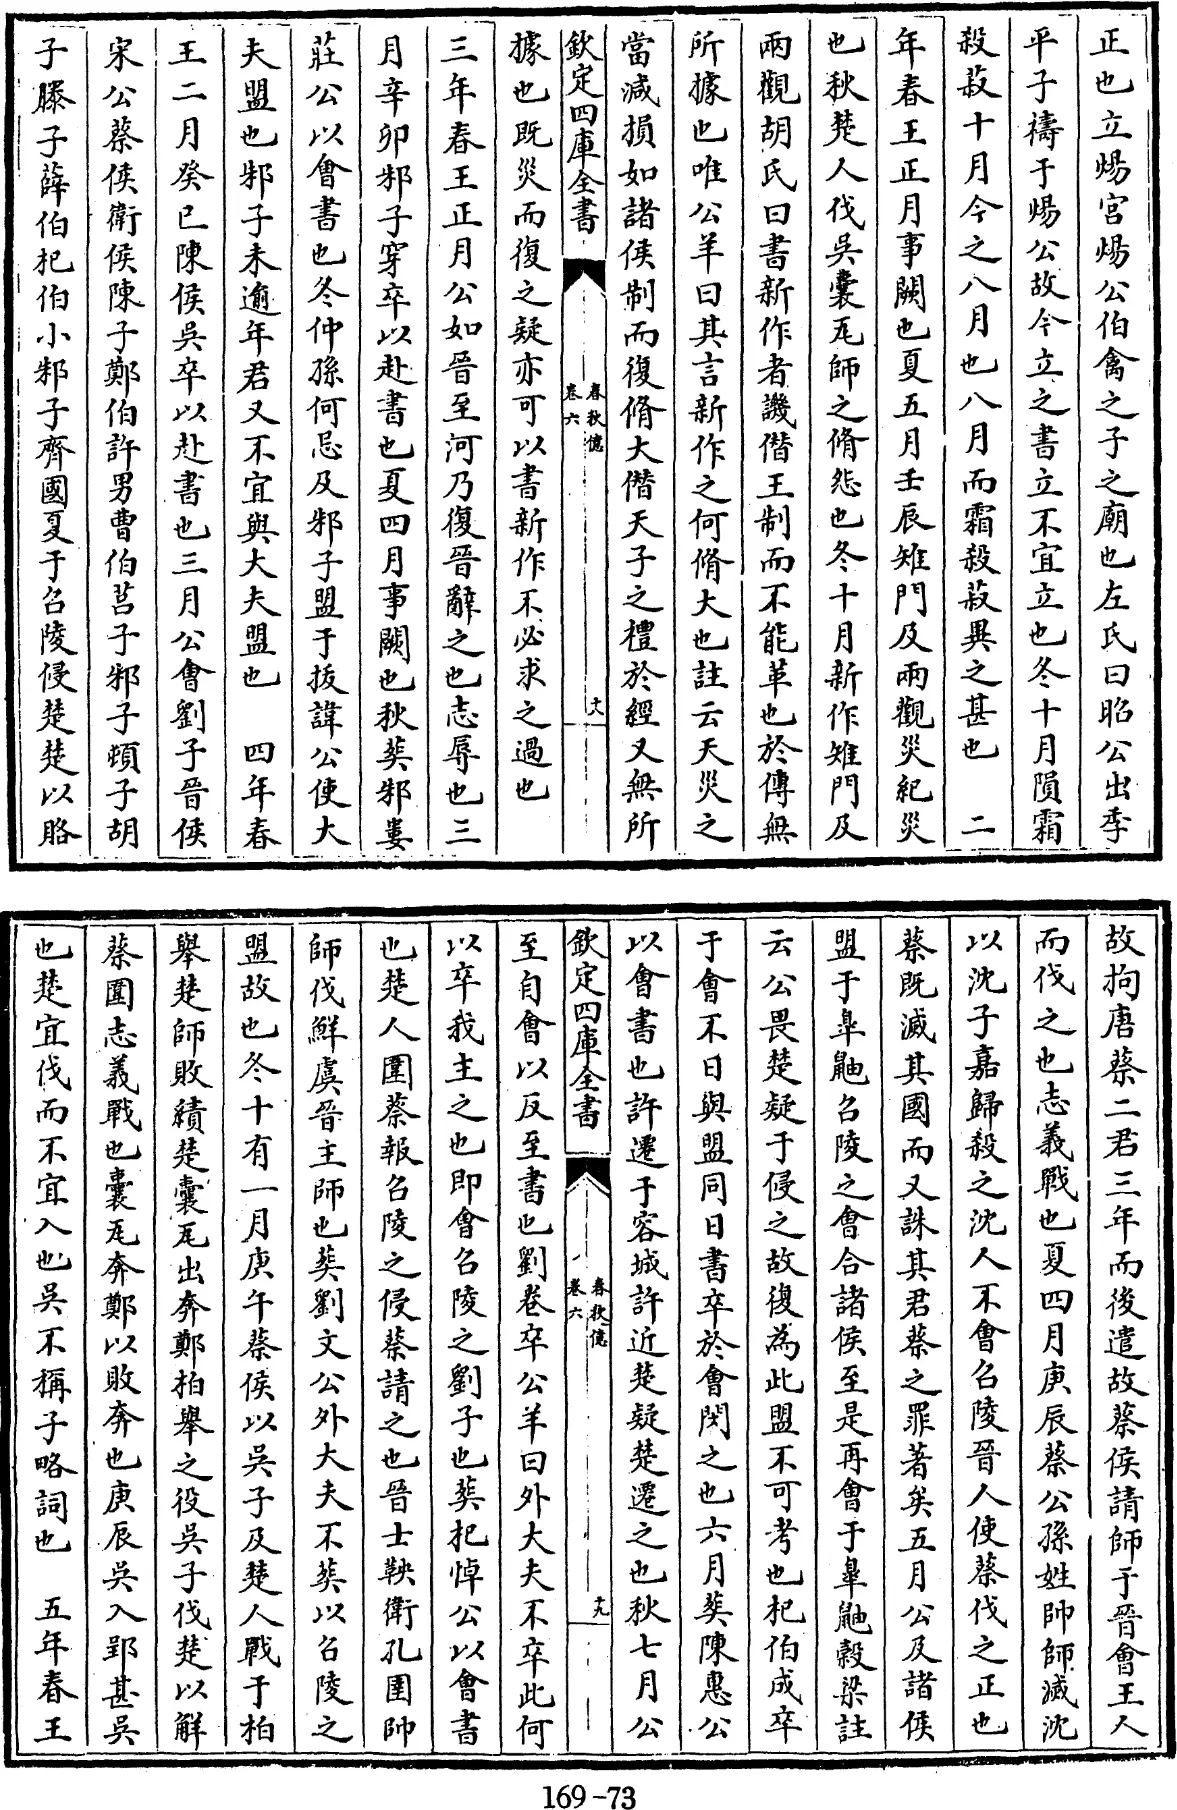 正也立煬宮煬公伯禽之子之廟也左氏曰昭公出季
平子禱于煬公故今立之書立不宜立也冬十月隕霜
殺菽十月今之八月也八月而霜殺菽異之甚也　二
年春王正月事闕也夏五月壬辰雉門及兩觀災紀災
也秋楚人伐吳囊瓦師之脩怨也冬十月新作雉門及
兩觀胡氏曰書新作者譏僭王制而不能革也於傳無
所據也唯公羊曰其言新作之何脩大也註云天災之
當減損如諸侯制而復脩大僭天子之禮於經又無所
欽定四庫全書
春秋億
卷六
據也既災而復之疑亦可以書新作不必求之過也
三年春王正月公如晉至河乃復晉辭之也志辱也三
月辛卯邾子穿卒以赴書也夏四月事闕也秋葬邾婁
莊公以會書也冬仲孫何忌及邾子盟于拔諱公使大
夫盟也邾子未逾年君又不宜與大夫盟也　四年春
王二月癸巳陳侯吳卒以赴書也三月公會劉子晉侯
宋公蔡侯衛侯陳子鄭伯許男曹伯莒子邾子頓子胡
子滕子薛伯杞伯小邾子齊國夏于召陵侵楚楚以賂
故拘唐蔡二君三年而後遣故蔡侯請師于晉會王人
而伐之也志義戰也夏四月庚辰蔡公孫姓帥師滅沈
以沈子嘉歸殺之沈人不會召陵晉人使蔡伐之正也
蔡既滅其國而又誅其君蔡之罪著矣五月公及諸侯
盟于臯鼬召陵之會合諸侯至是再會于臯鼬穀梁註
云公畏楚疑于侵之故復為此盟不可考也杞伯成卒
于會不日與盟同日書卒於會閔之也六月葬陳惠公
以會書也許遷于容城許近楚疑楚遷之也秋七月公
欽定四庫全書
春秋億
卷六
十九
至自會以反至書也劉卷卒公羊曰外大夫不卒此何
以卒我主之也即會召陵之劉子也葬杞悼公以會書
也楚人圍蔡報召陵之侵蔡請之也晉士鞅衛孔圉帥
師伐鮮虞晉主師也葬劉文公外大夫不葬以召陵之
盟故也冬十有一月庚午蔡侯以吳子及楚人戰于柏
舉楚師敗績楚囊瓦出奔鄭柏舉之役吳子伐楚以解
蔡圍志義戰也囊瓦奔鄭以敗奔也庚辰吳入郢甚吳
也楚宜伐而不宜入也吳不稱子略詞也　五年春王
169-73